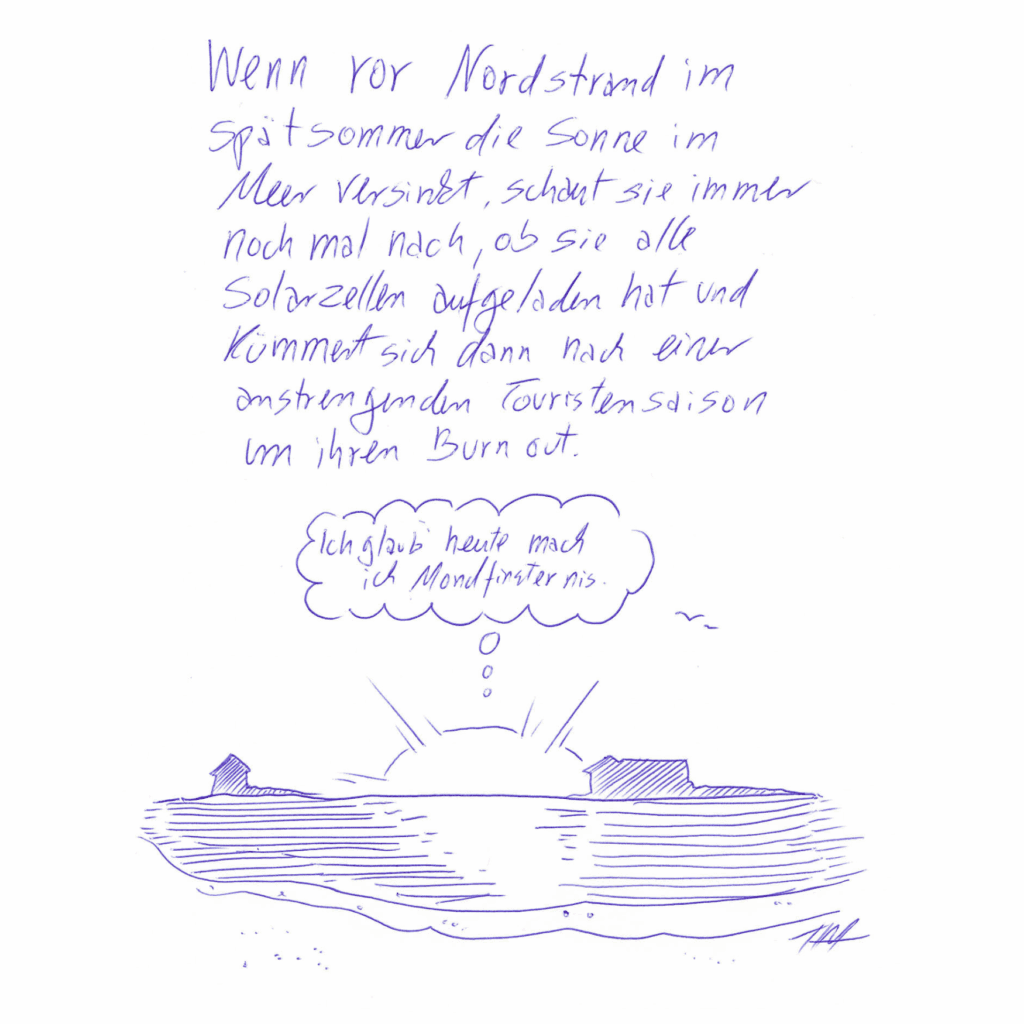 Wenn vor Nordstrand im
Spätsommer die Sonne im
Meer versinkt, schaut sie immer
noch mal nach, ob sie alle
Solarzellen aufgeladen hat und
kümmert sich dann nach einer
anstrengenden Touristensaison
um ihren Burn out.
Ich glaub' heute mach
ich Mondfinsternis.